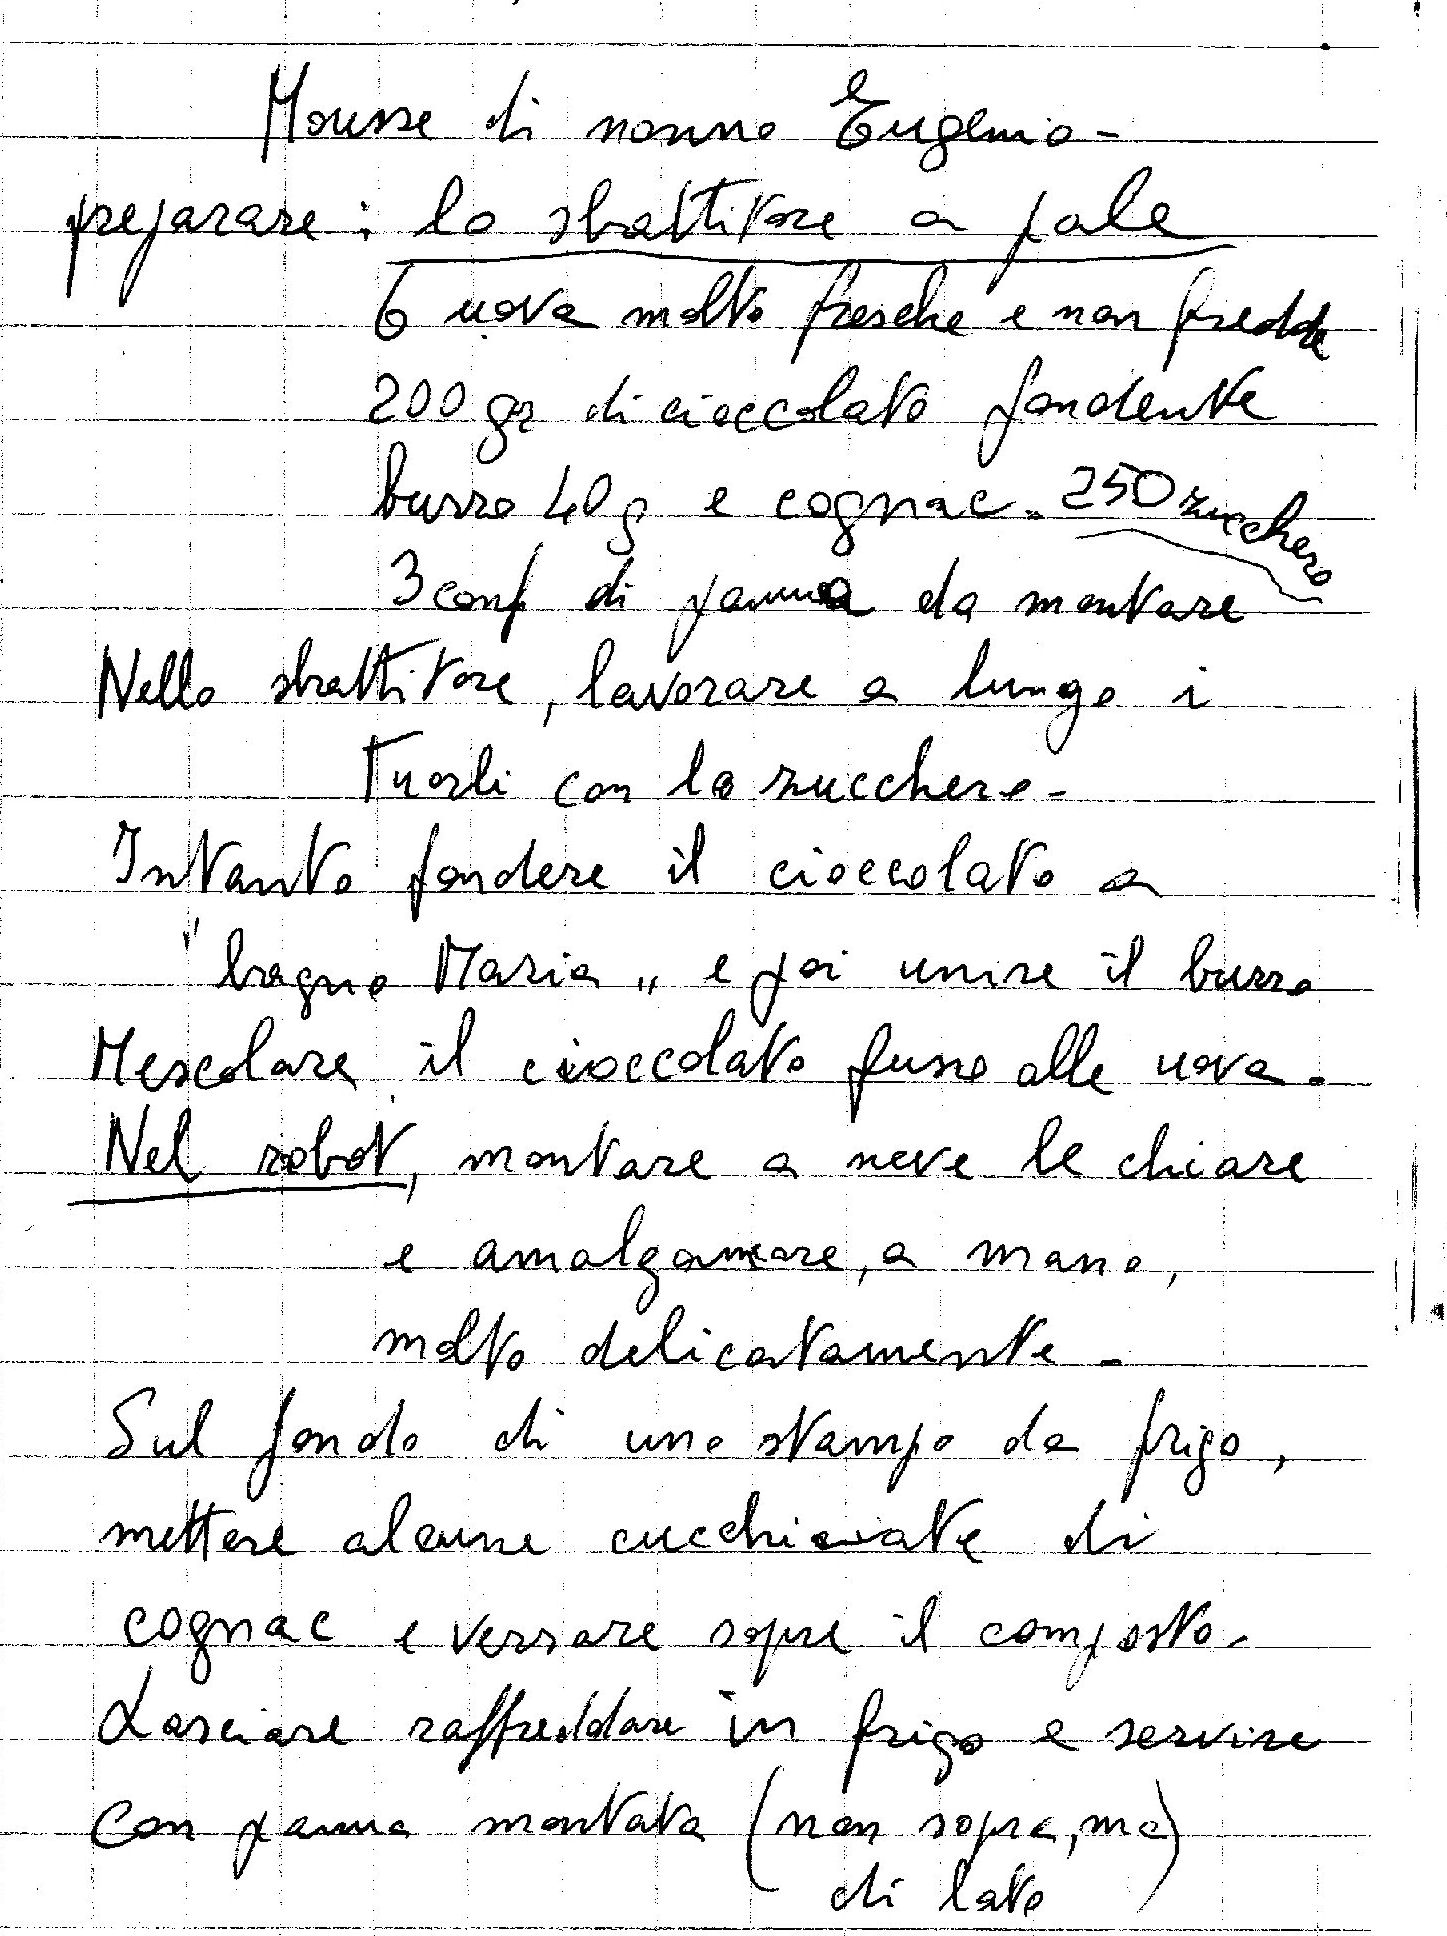 Mousse di nonno Eugenio -
preparare : lo sbattitore a pale
6 uova molto fresche e non fredde
200 gr di cioccolato fondente
burro 40 g e cognac - 250 zucchero
3 conf di panna da montare
Nello sbattitore, lavorare a lungo i
tuorli con lo zucchero -
Intanto fondere il cioccolato a
"bagno Maria" e poi unire il burro
Mescolare il cioccolato fuso alle uova -
Nel robot, montare a neve le chiare
e amalgamare, a mano,
molto delicatamente -
Sul fondo di uno stampo da frigo,
mettere alcune cucchiaiate di
cognac e versare sopra il composto -
Lasciare raffreddare in frigo e servire
con panna montata (non sopra, ma
di lato)